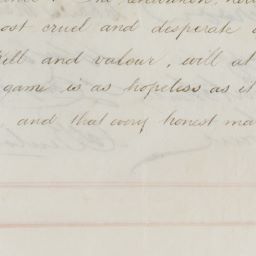 ost cruel and desperate
ill and valour, will at
game is as hopeless as it
and that every honest ma